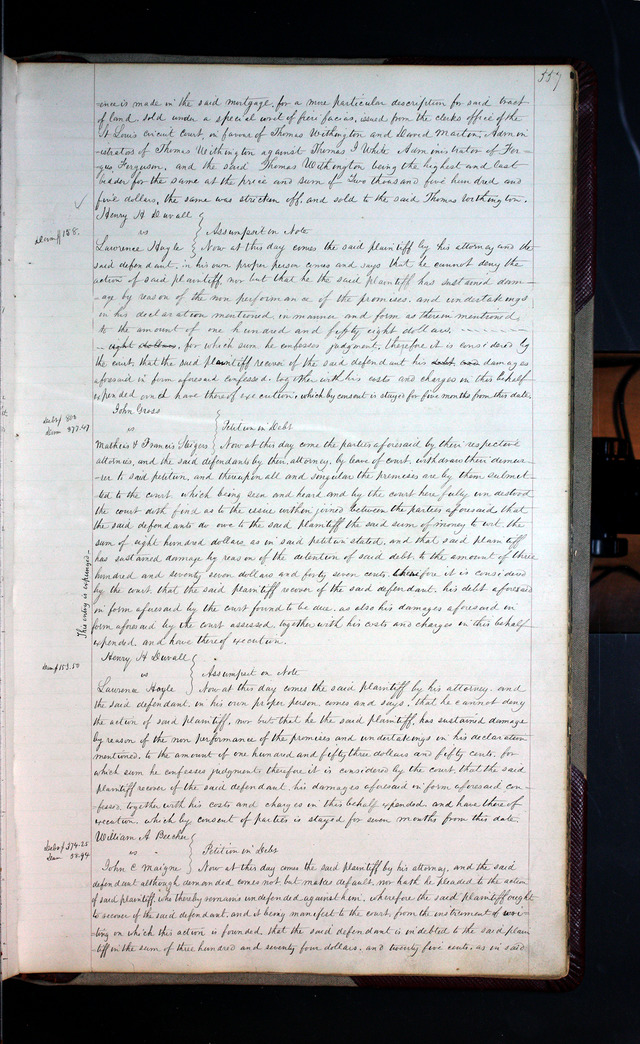 557
-ence is made in the said mortgage, for a more particular description for said tract
of land, sold under a special writ of fiere facias, issued from the clerks office of the
St Louis circuit court, in favor of Thomas Withington and David Marton, Admin-
-istrators of Thomas Withington against Thomas J White Administrator of Fer-
-gus Ferguson, and the said Thomas Withington being the highest and last
bidder for the same at the price and sum of Two thousand five hundred and
five dollars, the same was stricken off, and sold to the said Thomas Withington.
Henry H Duvall
vs
Assumpsit on Note
Dam $158.
Lawrence Hoyle
Now at this day comes the said plaintiff by his attorney and the
said defendant, in his own proper person comes and says that he cannot deny the
action of said plaintiff, nor but that he the said plaintiff has sustained dam-
-age by reason of the non performance of the promises and undertakings
in his declaration mentioned in manner and form as therein mentioned,
to the amount of one hundred and fifty eight dollars.
eight dollars, for which sum he confesses judgment, therefore it is considered by
the court, that the said plaintiff recover of the said defendant his debt and damages
aforesaid in form aforesaid confessed, together with his costs and charges in this behalf
expended and have thereof execution, which by consent is stayed for five months from this date.
John Gross
vs
Petition in Debt
Debt $800
Dam 377.47
Mathew & Francis Steigers
Now at this day come the parties aforesaid by their respective
attornies, and the said defendants by their attorney, by leave of court, withdraw their demur-
-rer to said petition, and thereupon all and singular the premises are by them submit-
ted to the court which being seen and heard and by the court here fully understood
the court doth find as to the issue within joined between the parties aforesaid, that
the said defendants do owe to the said plaintiff the said sum of money to wit the
sum of eight hundred dollars, as in said petition stated, and that said plaintiff
has sustained damage by reason of the detention of said debt, to the amount of three
hundred and seventy seven dollars and forty seven cents. therefore it is considered
by the court that the said plaintiff recover of the said defendant, his debt aforesaid
in form aforesaid by the court found to be due, as also his damages aforesaid in
form aforesaid by the court assessed, together with his costs and charges in this behalf
expended, and have thereof execution.
This entry is expunged
Henry H Duvall
vs
Assumpsit on Note
Dam $153.50
Lawrence Hoyle
Now at this day comes the said plaintiff by his attorney, and
the said defendant, in his own proper person, comes and says, that he cannot deny
the action of said plaintiff, nor but that he the said plaintiff, has sustained damage
by reason of the non performance of the promises and undertakings in his declaration
mentioned, to the amount of one hundred and fifty three dollars and fifty cents, for
which sum he confesses judgment, therefore it is considered by the court, that the said
plaintiff recover of the said defendant, his damages aforesaid in form aforesaid con-
-fessed, together with his costs and charges in this behalf expended, and have thereof
execution, which by consent of parties is stayed for seven months from this date.
William A Beecher
vs
Petition in Debt
Debt $374.25
Dam 52.94
John C Maigne
Now at this day comes the said plaintiff by his attorney, and the said
defendant although demanded comes not but makes default, nor hath he pleaded to the action
of said plaintiff, who thereby remains undefended against him, wherefore the said plaintiff ought
to recover of the said defendant, and it being manifest to the court, from the instrument of wri-
ting on which this action is founded, that the said defendant is indebted to the said plain-
tiff in the sum of three hundred and seventy four dollars, and twenty five cents, as in said